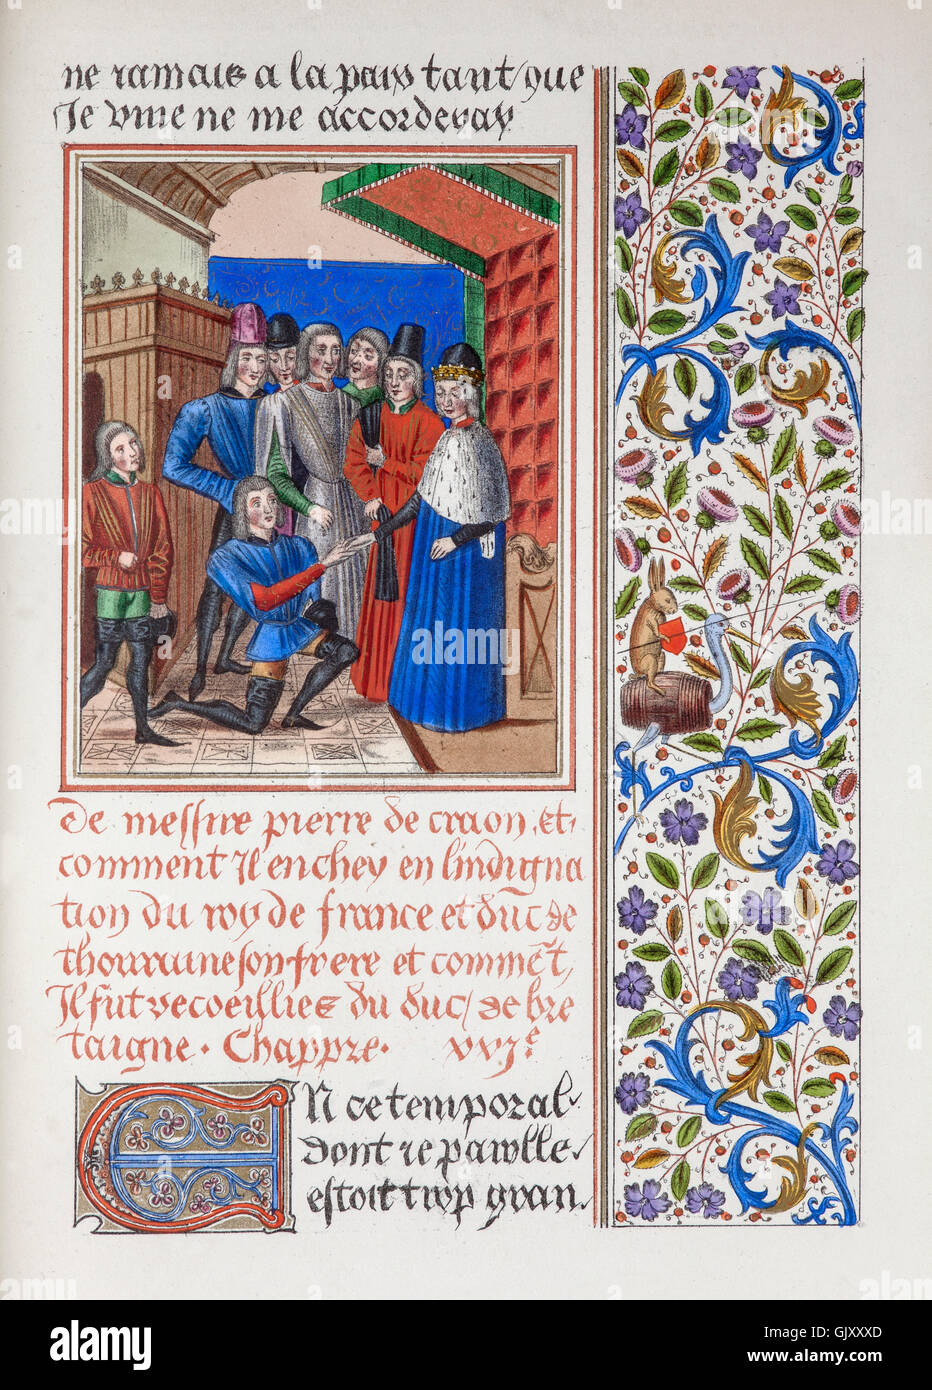 ne ramais a la paix tant que
Je vive ne me accorderay
De messire pierre de craon et
comment Il enchey en lindigna
tion du roy de france et duc de
thourayne son frere et comment
Il fut recoeillies du duc de bre
taigne. Chappre. xxje
EN ce temporal
dont je parolle
estoit trop gran
alamy stock photo
GJXXXD
www.alamy.com